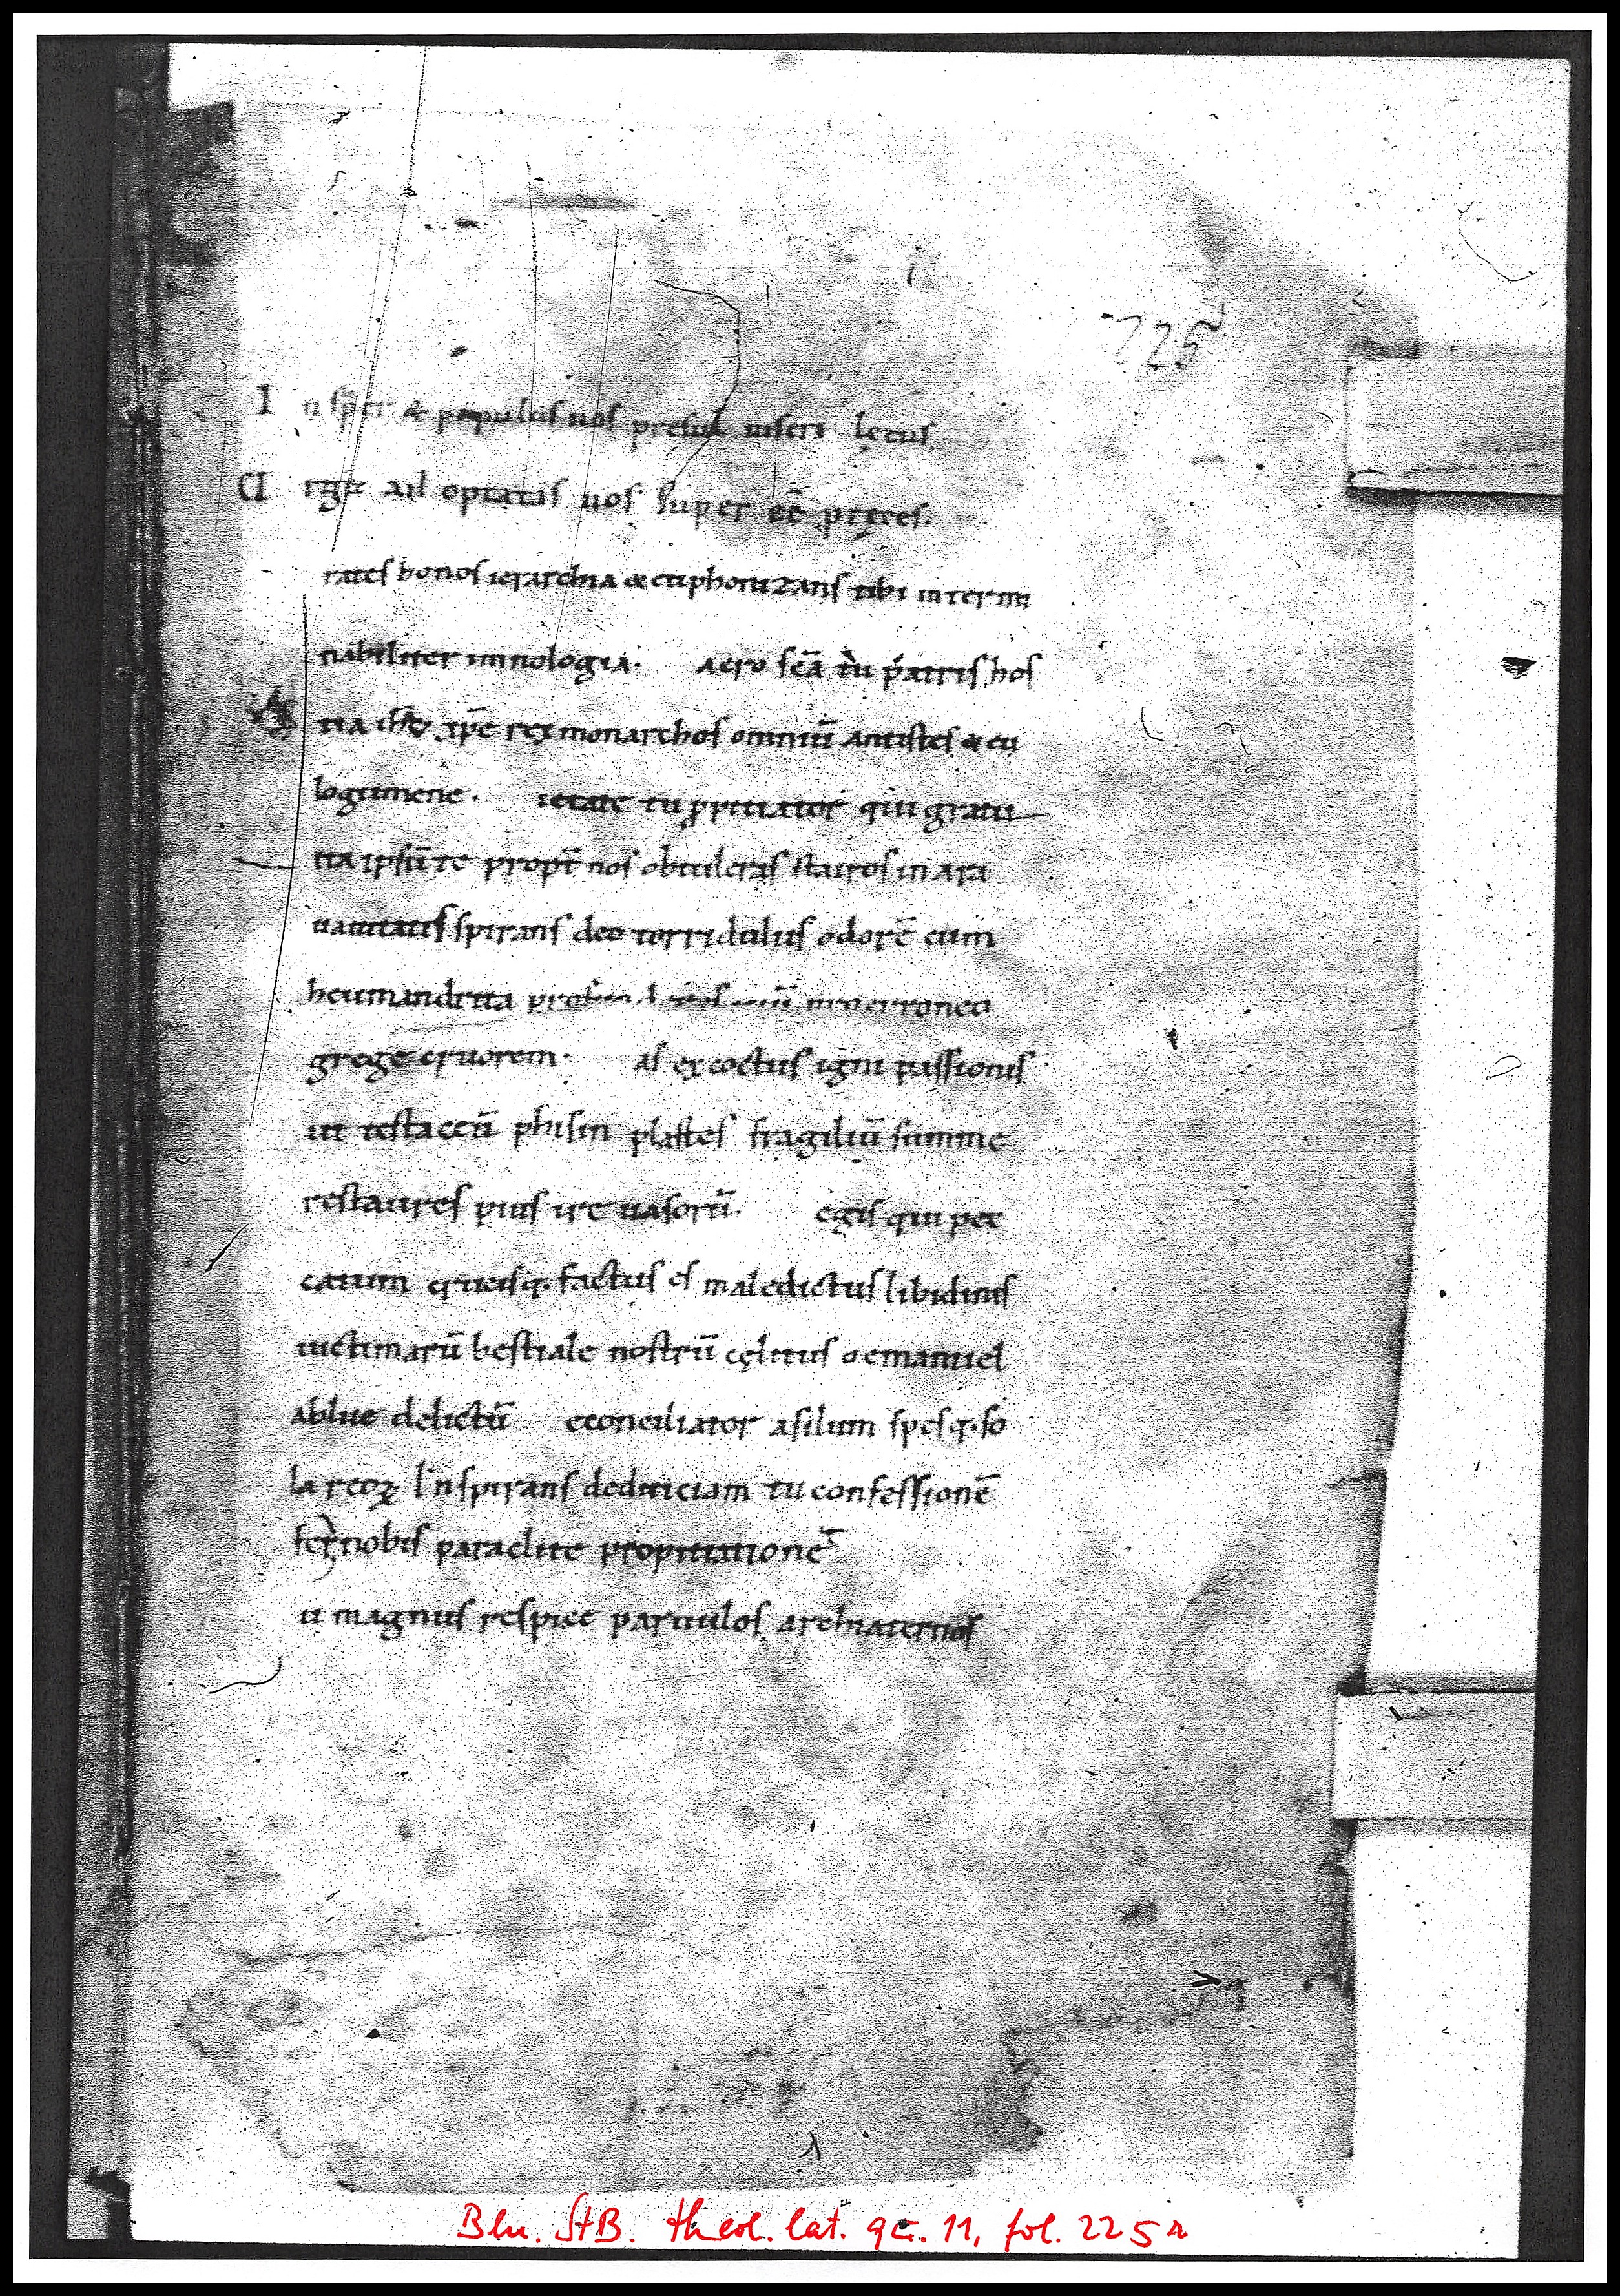 225
In sp̄er & populus uos presul uiseri lętus
U ad optatas uos super ēē pręces.
rates bonos ierarchia & euphonizans tibi intermi
nabiliter imnologia. acro sc̄a tu patris hos
tia ih̄u xp̄e rex monarchos omniū antistes & eu
logumene. ietate tu ppitiator qui gratu
ita ipsū te propt̄ nos obtuleras stauros in ara
uauitatis spirans deo torridulus odorē cum
heumandrita erroneo
grege cruorem. as excoctus igni passionis
ut testaceū philin plastes fragiliū summe
restaures pius ire uasorū. egis qui pec
catum crucisq. factus es maledictus libidinis
uictimarū bestiale nostrū cęlitus o emanuel
ablue delictū econciliator asilum spesq. so
la reoꝝ inspirans dediticiam tu confessionē
fer nobis paraclite propitiationē
u magnus respice paruulos archiaternos
Bln. StB. theol. lat. qt. 11, fol. 225r